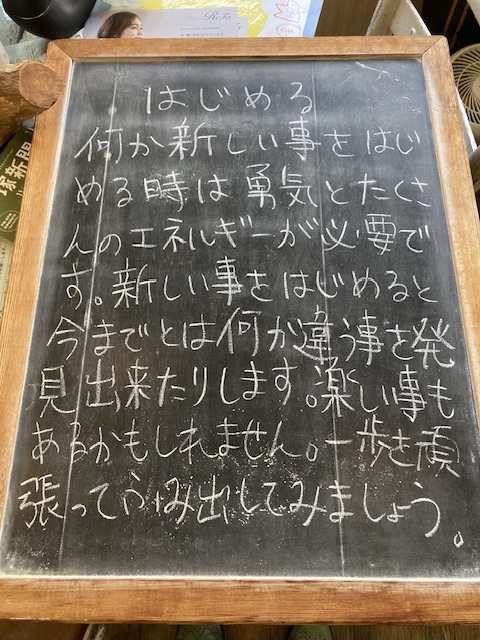 ReFa
新聞
はじめる
何か新しい事をはじ
める時は勇気とたくさ
んのエネルギーが必要で
す。新しい事をはじめると
今までとは何か違う事を発
見出来たりします。楽しい事も
あるかもしれません。一歩を頑
張ってふみ出してみましょう。